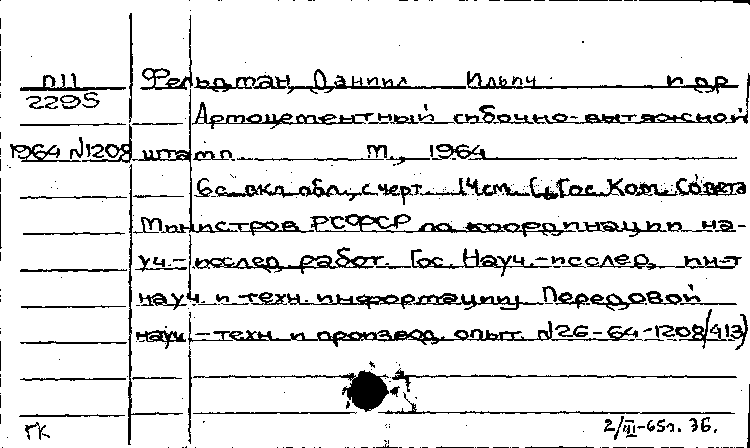 П11 Фельдман, Даниил Ильич и др
2295 Армоцементный гибочно-вытяжной
1964 №1208 штамп. М., 1964
6с. вкл. обл., с черт. 14см. (Гос. Ком. Совета
Министров РСФСР по координации на-
уч.-исслед. работ. Гос. Науч.-исслед. ин-т
науч. и техн. информации. Передовой
науч.-техн. и производ. опыт. №26-64-1208/413)
ГК 2/III-65г. ЗБ.